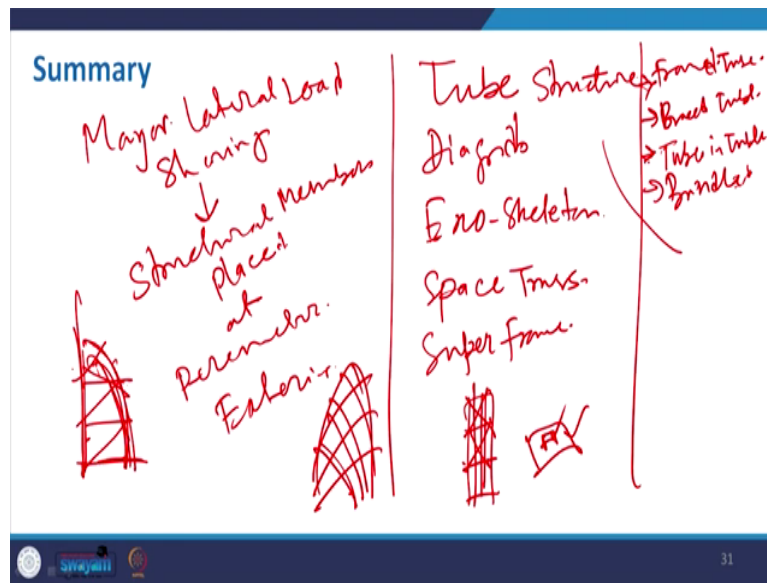 Summary
Mayor Lateral Load
Sharing
Structural Members
Placed
at
Perimeter.
Exterior
Tube Structures
Diagrids
Exo-Skeleton.
Space Truss.
Super frame.
→ Framed Tube.
→ Braced Tube.
→ Tube in Tube
→ Bundled
swayam
31